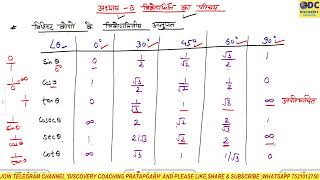 DC
DISCOVERY
अध्याय -8 त्रिकोणमिति का परिचय
* विशिष्ट कोणों के त्रिकोणमितीय अनुपात
∠θ 0° 30° 45° 60° 90°
0/1 sinθ 0 1/2 1/√2 √3/2 1
cosθ 1 √3/2 1/√2 1/2 0
1/0 tanθ 0 1/√3 1 √3 ∞
cosecθ ∞ 2 √2 2/√3 1
secθ 1 2/√3 √2 2 ∞
cotθ ∞ √3 1 1/√3 0
JOIN TELEGRAM CHANNEL 'DISCOVERY COACHING PRATAPGARH' AND PLEASE LIKE,SHARE & SUBSCRIBE (WHATSAPP 7521012750